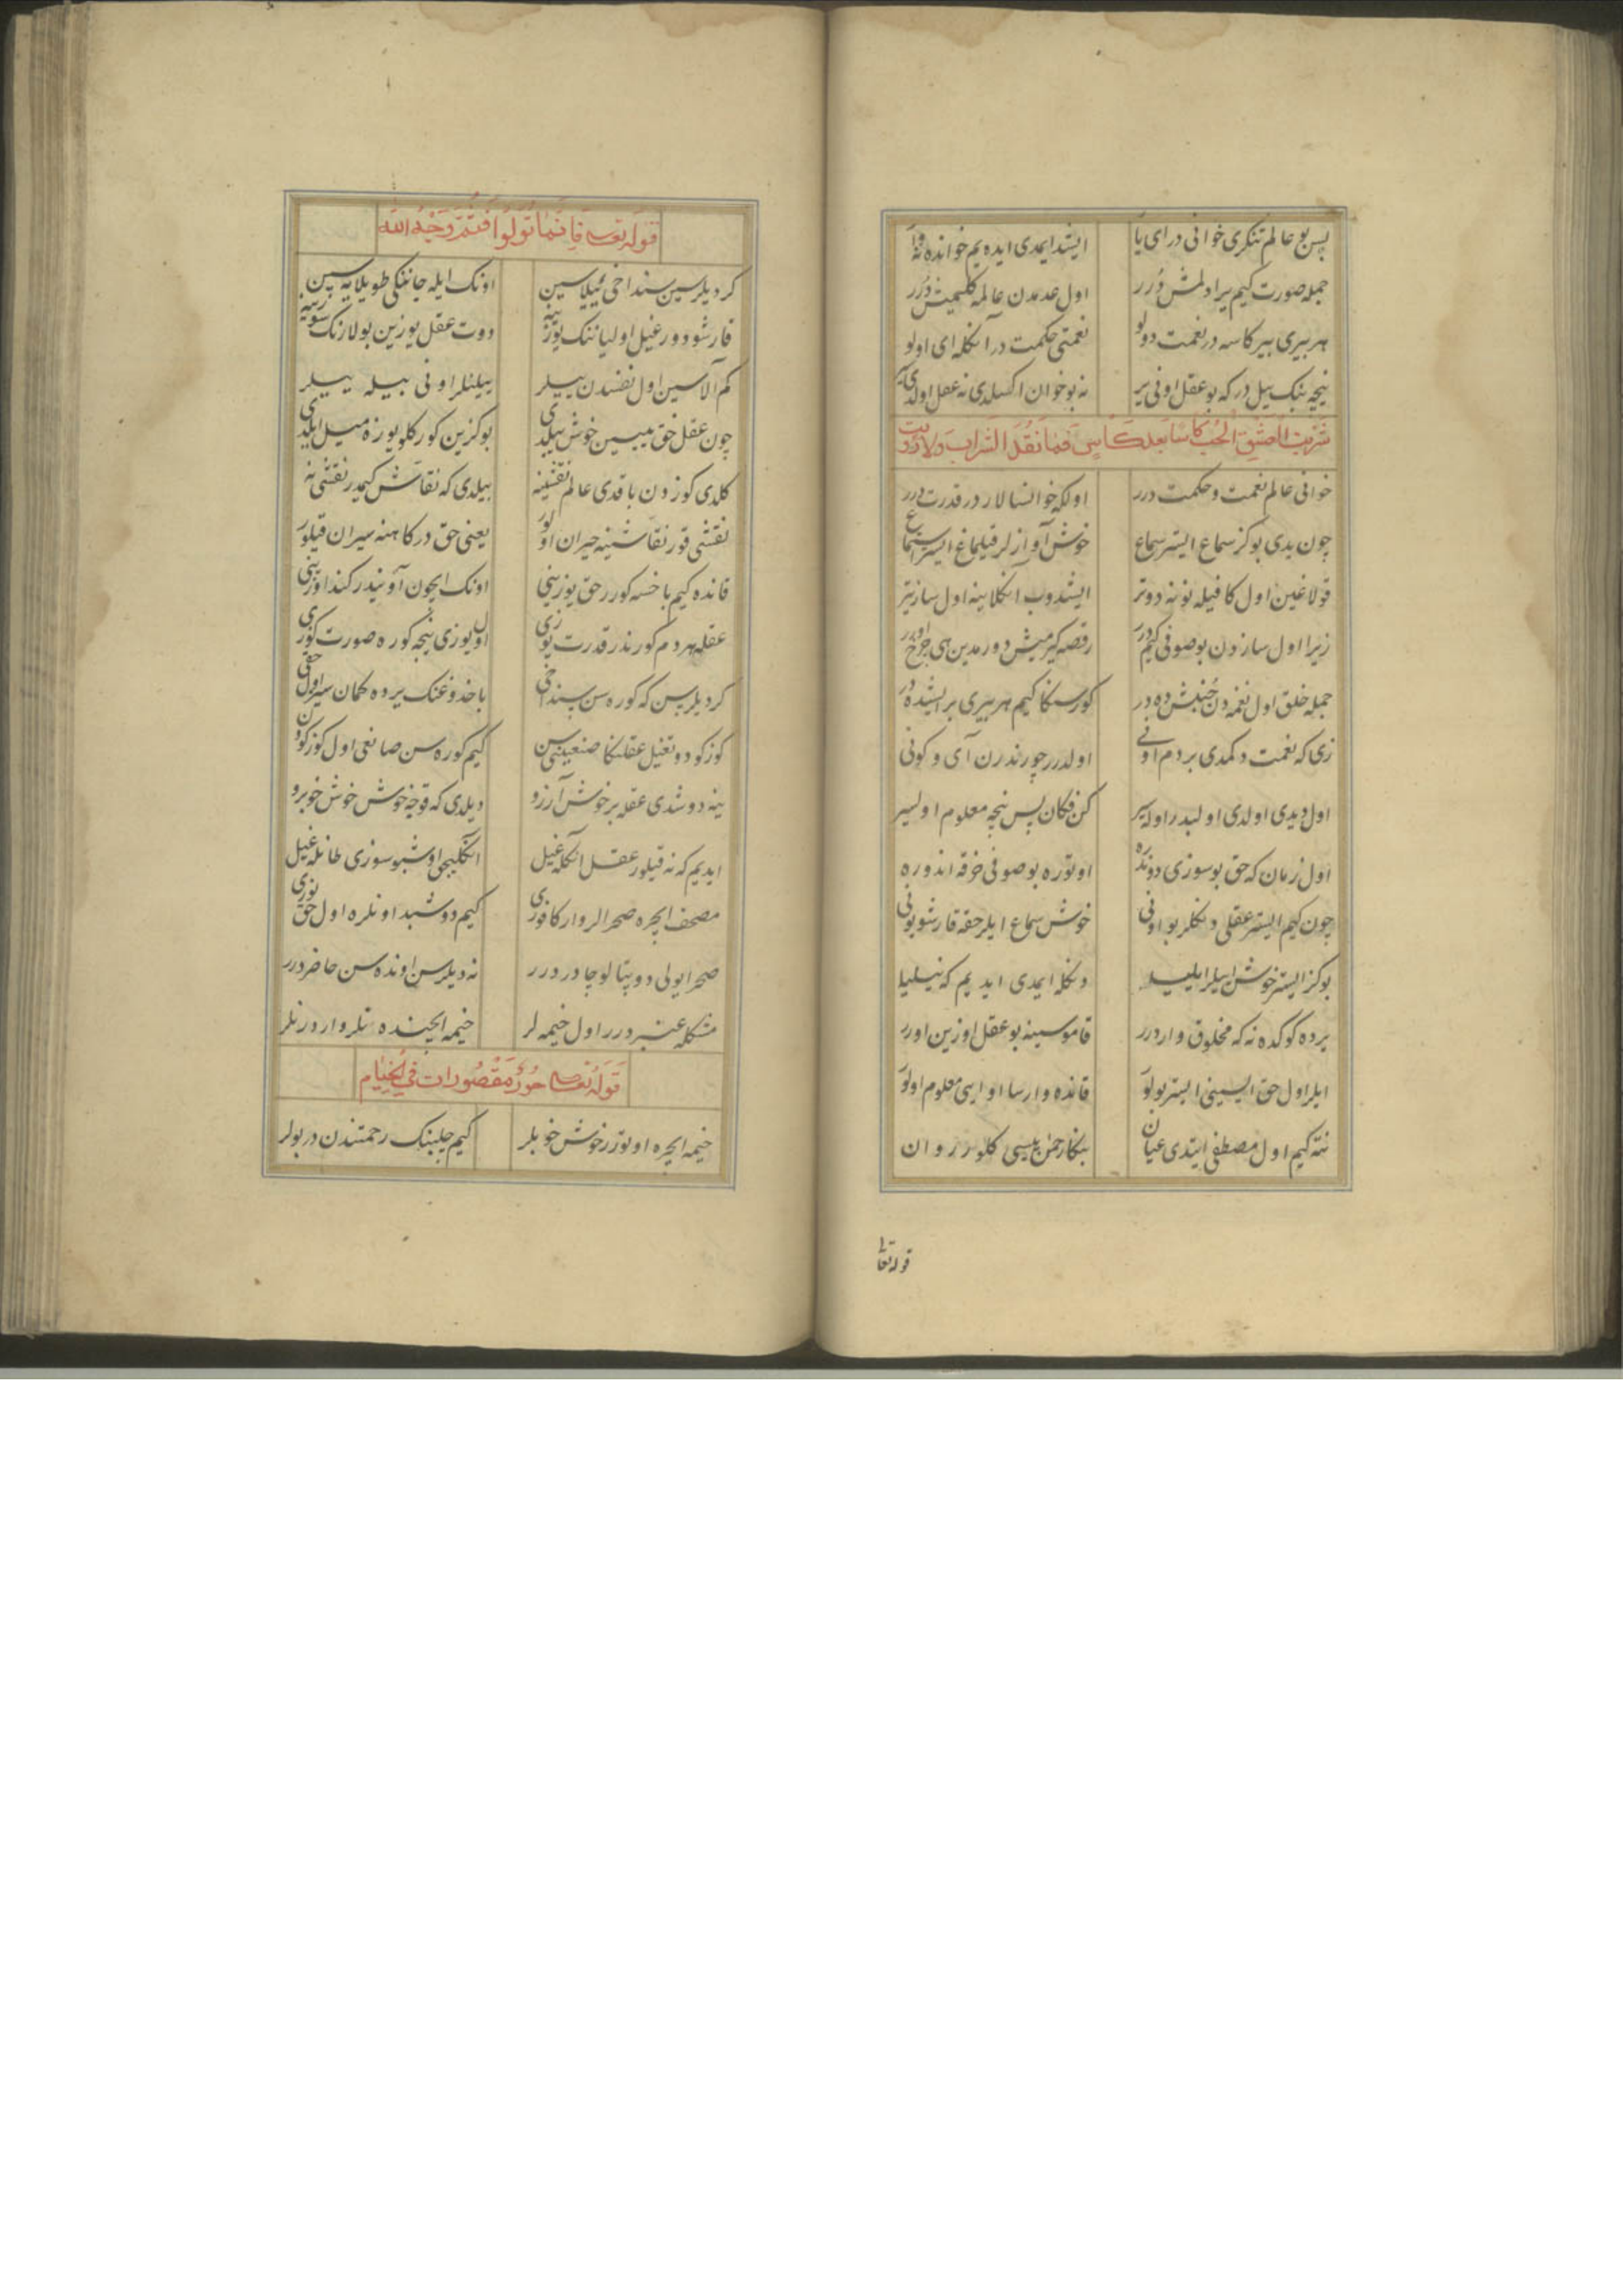 پس بو عالم تنکری خوانی در ای یا ایشد ایمدی ایده یم خوانده نه وار
جمله صورت کیم یرادلمش دُرر اول عدمدن عالمه کلمیش دُرر
هر بیری بیر کاسه در نعمت دولو نعمتی حکمت در آنکله ای اولو
نیچه بنک ییل در که بو عقل اونی یر نه بو خوان اکسلدی نه عقل اولدی
شربت الحب کاسا بعد کاس فما نفد الشراب ولا رویت
خوانی عالم نعمت و حکمت درر اولکه خوانسالار در قدرت درر
چون یدی بو کز سماع ایستر سماع خوش آوازلر قیلماغ ایستر استماع
قولاغین اول کا قیله یونه دوتر ایشدوب آنکلاینه اول ساز نیتر
زیرا اول سازدن بو صوفی کیم درر رقصه کیرمیش دورمدین هی چرخ اورر
جمله خلق اول نغمه دن جُنبش ده در کورسنکا کیم هر بیری بر ایشده در
زی که نعمت دکمدی بر دم اونی اولدرر چورندرن آی و کونی
اول دیدی اولدی اولبدر اوله یر کن فکان پس نیچه معلوم اولیسر
اول زمان که حق بو سوزی دوندره اوتوره بو صوفی خرقه اندوره
چون کیم ایستر عقلی دنکلر بو اونی خوش سماع ایلر حقه قارشو بونی
بو کز ایستر خوش ایلر دنکله ایمدی ایدیم که نیلیا
یرده کوکده نه که مخلوق وار درر قاموسینه بو عقل اوزین اورر
ایلر اول حق ایسینی ایستر بولور قانده وارسا او ایسی معلوم اولور
نته کیم اول مصطفی ایتدی عیان بنکا رحمن ییسی کلور روان
قوله تعا
قوله تعالی فاینما تولوا فثم وجه الله
کر دیلرسین سنداخی ییلاسین اونک ایله جاننکی طویلایه سین
قارشو دورغیل اولیاننک یوزینه دوت عقل یوزین بولارنک سوزینه
کم آلاسین اول نفسدن ییلر بیلنلر اونی بیله بیلر
چون عقل حق ییسین خوش ییلدی بو کزین کورکلو یوزه میل ایلدی
کلدی کوزدن باقدی عالم نقشینه بیلدی که نقاش کیمدر نقشی نه
نقشی قور نقاشینه حیران اولور یعنی حق درکاهنه سیران قیلور
قانده کیم باخسه کورر حق یوزینی اونک ایچون آویندر کند اوزینی
عقله هر دم کورنذر قدرت یوزی اول یوزی نیجه کوره صورت کوزی
کر دیلرسن که کوره سن سنداخی باخدوغنک یرده کمان سیز اول حقی
کوزکو دوتغیل عقلنکا صنعینی سن کیم کوره سن صانعی اول کوزکودن
ینه دوشدی عقله بر خوش آرزو دیلدی که قوچه خوش خوش خوبرو
ایدیم که نه قیلور عقل انکله غیل انکلیجی اوشبو سوزی طانله غیل
مصحف ایچره صحرالر وار کاه یزی کیم دوشبد اونلره اول حق نوری
صحرا یولی دوپتالو چادر درر نه دیلرسن اونده سن حاضر درر
مشکله عنبر درر اول خیمه لر خیمه ایچنده نلر وار در نلر
قوله تعالی حور مقصورات فی الخیام
خیمه ایچره اوتورر خوش خوبلر کیم چلبنک رحمتندن در بولر